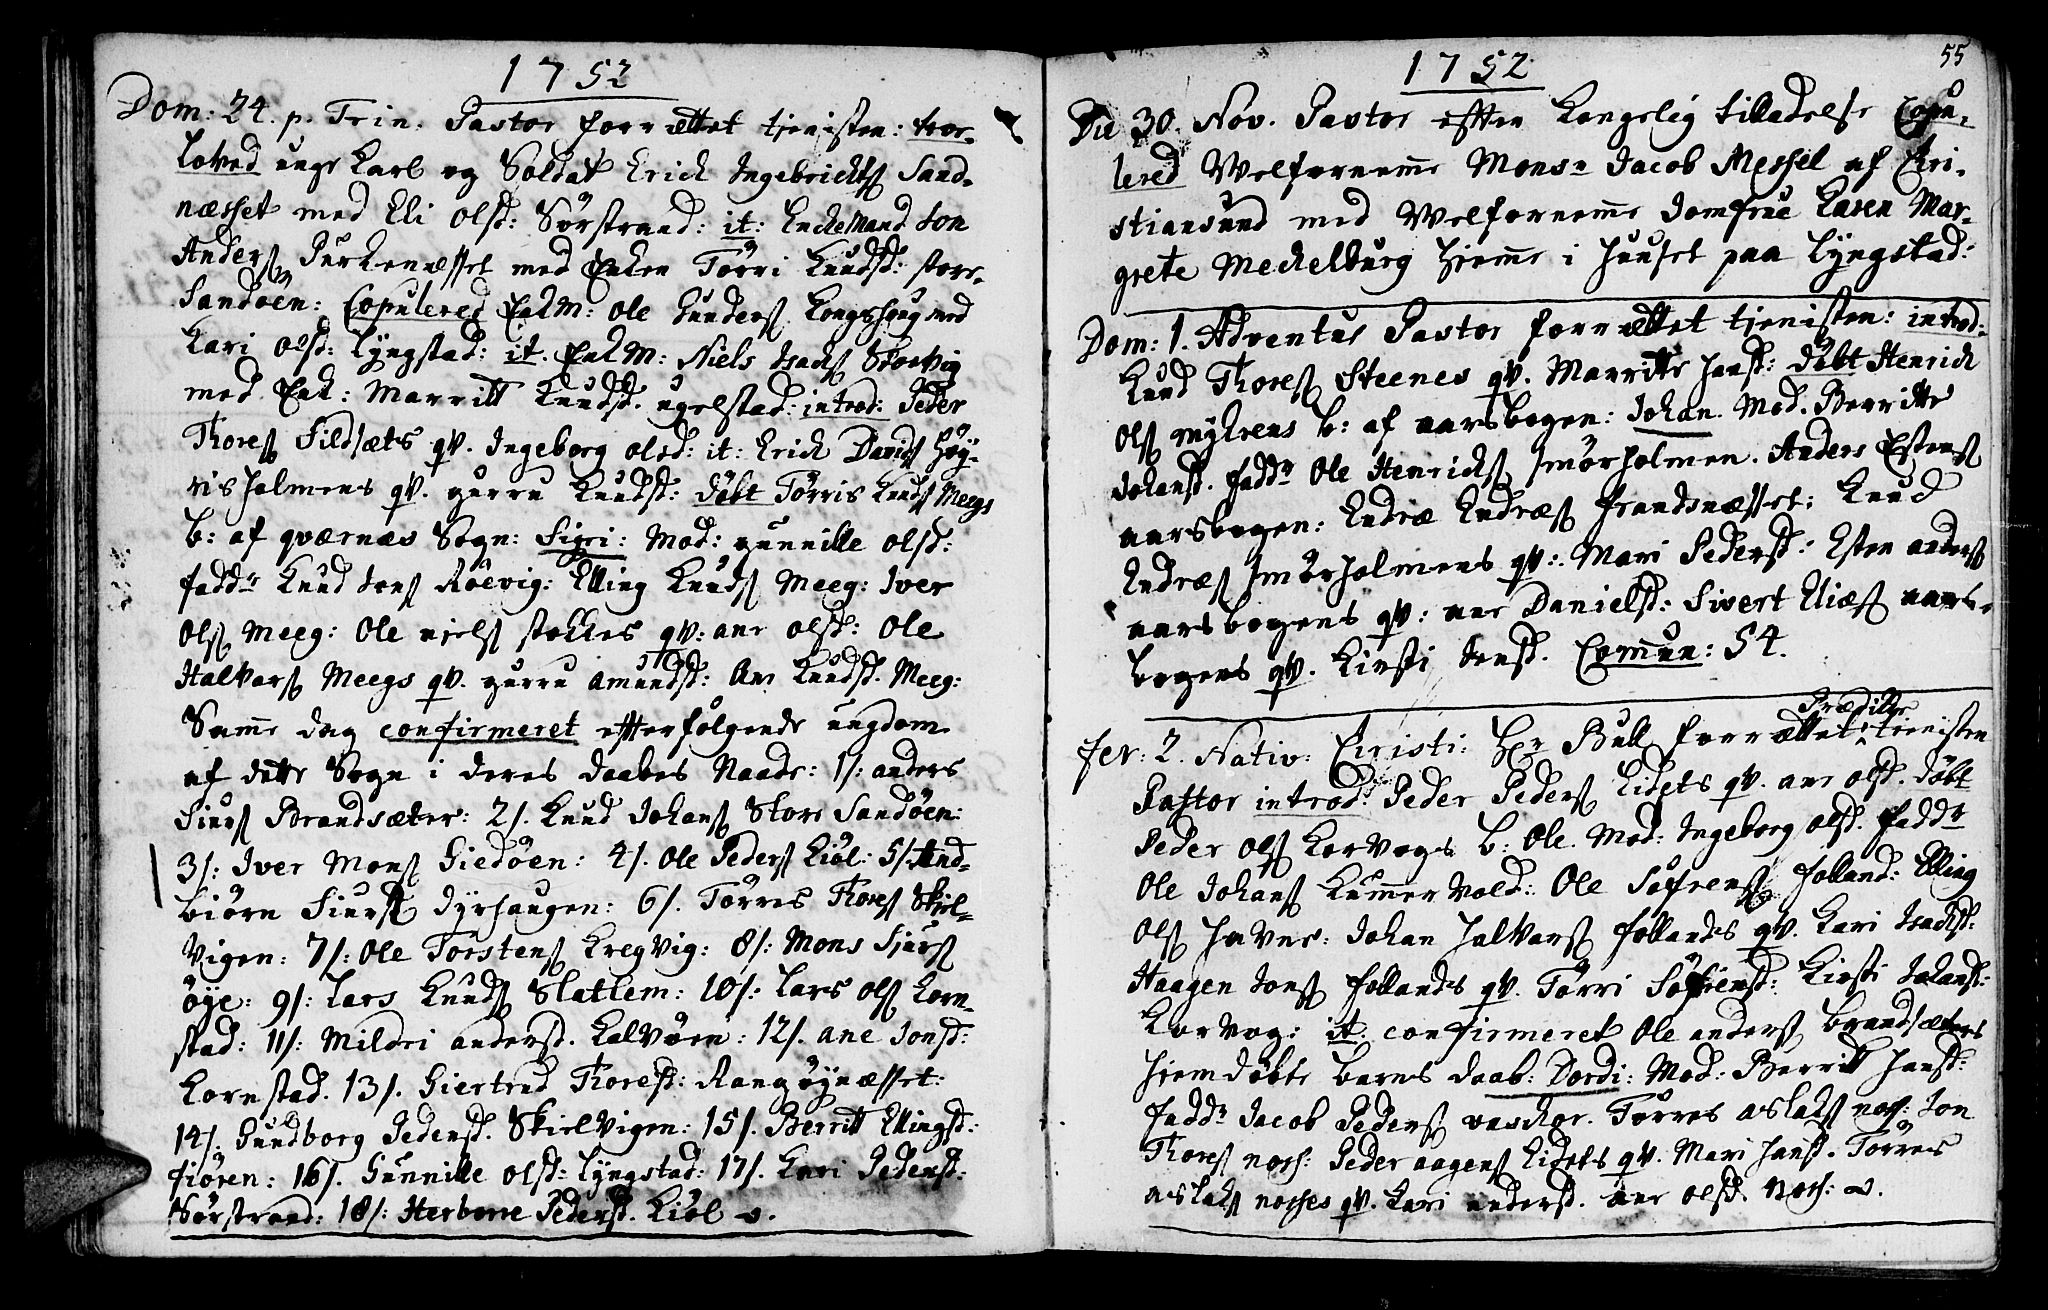 1752
Dom: 24. p. Trin. Pastor forrættet tienisten: troe-
loved unge Karl og Soldat Erich Ingebrichts Sand-
næsset med Eli Olsd: Sörstrand: it: Enckemand Jon
Anders med Enken Törri Knudsd: store-
Sandöen: Copulered EnkM: Ole Gunders Kongshoug med
Kari Olsd: Lÿngstad: it. EnkM: Niels Isachs Storvig
med Enk: Marritt Knudsd. ugelstad: introd: Peder
Thores Sildsæts qv. Ingeborg olsd: it: Erich Davids Höÿ-
risholmens qv. gurru Knudsd: döbt Törris Knuds Meegs
b: af qværnæs Sogn: Sigri: Mod: gunnille olsd:
faddr Knud Jons Röevig: Elling Knuds Meeg: Iver
Ols Meeg: Ole niels stockes qv: ane olsd: Ole
Halvars Meegs qv. gurru amundsd: Ane Knudsd. Meeg:
Samme dag confirmeret efterfölgende ungdom
af dette Sogn i deres daabes Naade: 1/: anders
Siurs Brandsæter: 2/. Knud Johans Store Sandöen:
3/: Iver Mons Giedöen: 4/. Ole Peders Kiöl: 5/. And-
biörn Siurs dÿrhaugen: 6/. Törres Thores Skiel-
vigen: 7/: Ole Torstens Kregvig: 8/: Mons Siurs
öÿe: 9/: Lars Knuds Slatlem: 10/: Lars ols Korn-
stad: 11/: Mildri andersd. Kalvöen: 12/. ane Jonsd:
Kornstad. 13/. Giertrud Thoresd: Rangöÿnæsset:
14/. Gundborg Pedersd. Skielvigen: 15/. Berritt Ellingsd:
fiören: 16/. Gunnille olsd: Lÿngstad: 17/. Kari Pedersd:
Sörstrand: 18/: Herborre Pedersd. Kiöl
1752
55
Die 30. Nov. Pastor efter Kongelig tilladelse Copu-
lered Welfornemme Monsr Jacob Messel af Chri-
stiansund med Welfornemme Jomfrue Karen Mar-
grete Meckelburg hiemme i huuset paa Lÿngstad:
Dom: 1. Adventus Pastor forrættet tienisten: introd:
Knud Thores Steenes qv. Marritte Hansd: döbt Henrich
Ols mÿhrens b: af aarsbogen: Johan. Mod. Berritte
Johansd. faddr Ole Henrichs smörholmen. Anders Estens
aarsbogen: Endræ Endræs frandsnæsset: Knud
Endræs smörholmens qv: Mari Pedersd: Esten anders
aarsbogens qv: ane Danielsd: Sivert Eliæs aars-
bogens qv. Kirsti Jensd. Commun: 54.
fer: 2. Nativ: Christi: Hr Bull forrættet Prædike tienisten
Pastor introd: Peder Peders Eidets qv. ane olsd. döbt
Peder Ols Korvogs b: Ole. Mod: Ingeborg olsd. faddr
Ole Johans Kummervold: Ole Söfrens folland: Elling
Ols Havne: Johan Halvars follands qv. Kari Isachsd:
Haagen Jons follands qv. Törri Söfrensd: Kirsti Johansd:
Korvog: it. confirmeret Ole anders brandsæters
hiemdöbte barns daab: Dordi: Mod: Berritt Hansd:
faddr Jacob Peders vaschor. Törres aslaks nos: Jon
Thores nosh: Peder aagens Eidets qv. Mari Hansd. Törres
aslaks noshes qv. Kari andersd. ane olsd. nosh: